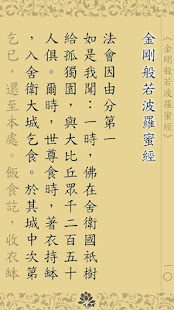 《金剛般若波羅蜜經》
金剛般若波羅蜜經
法會因由分第一
如是我聞：一時，佛在舍衛國祇樹
給孤獨園，與大比丘眾千二百五十
人俱。爾時，世尊食時，著衣持缽
，入舍衛大城乞食。於其城中次第
乞已，還至本處。飯食訖，收衣缽
一〇